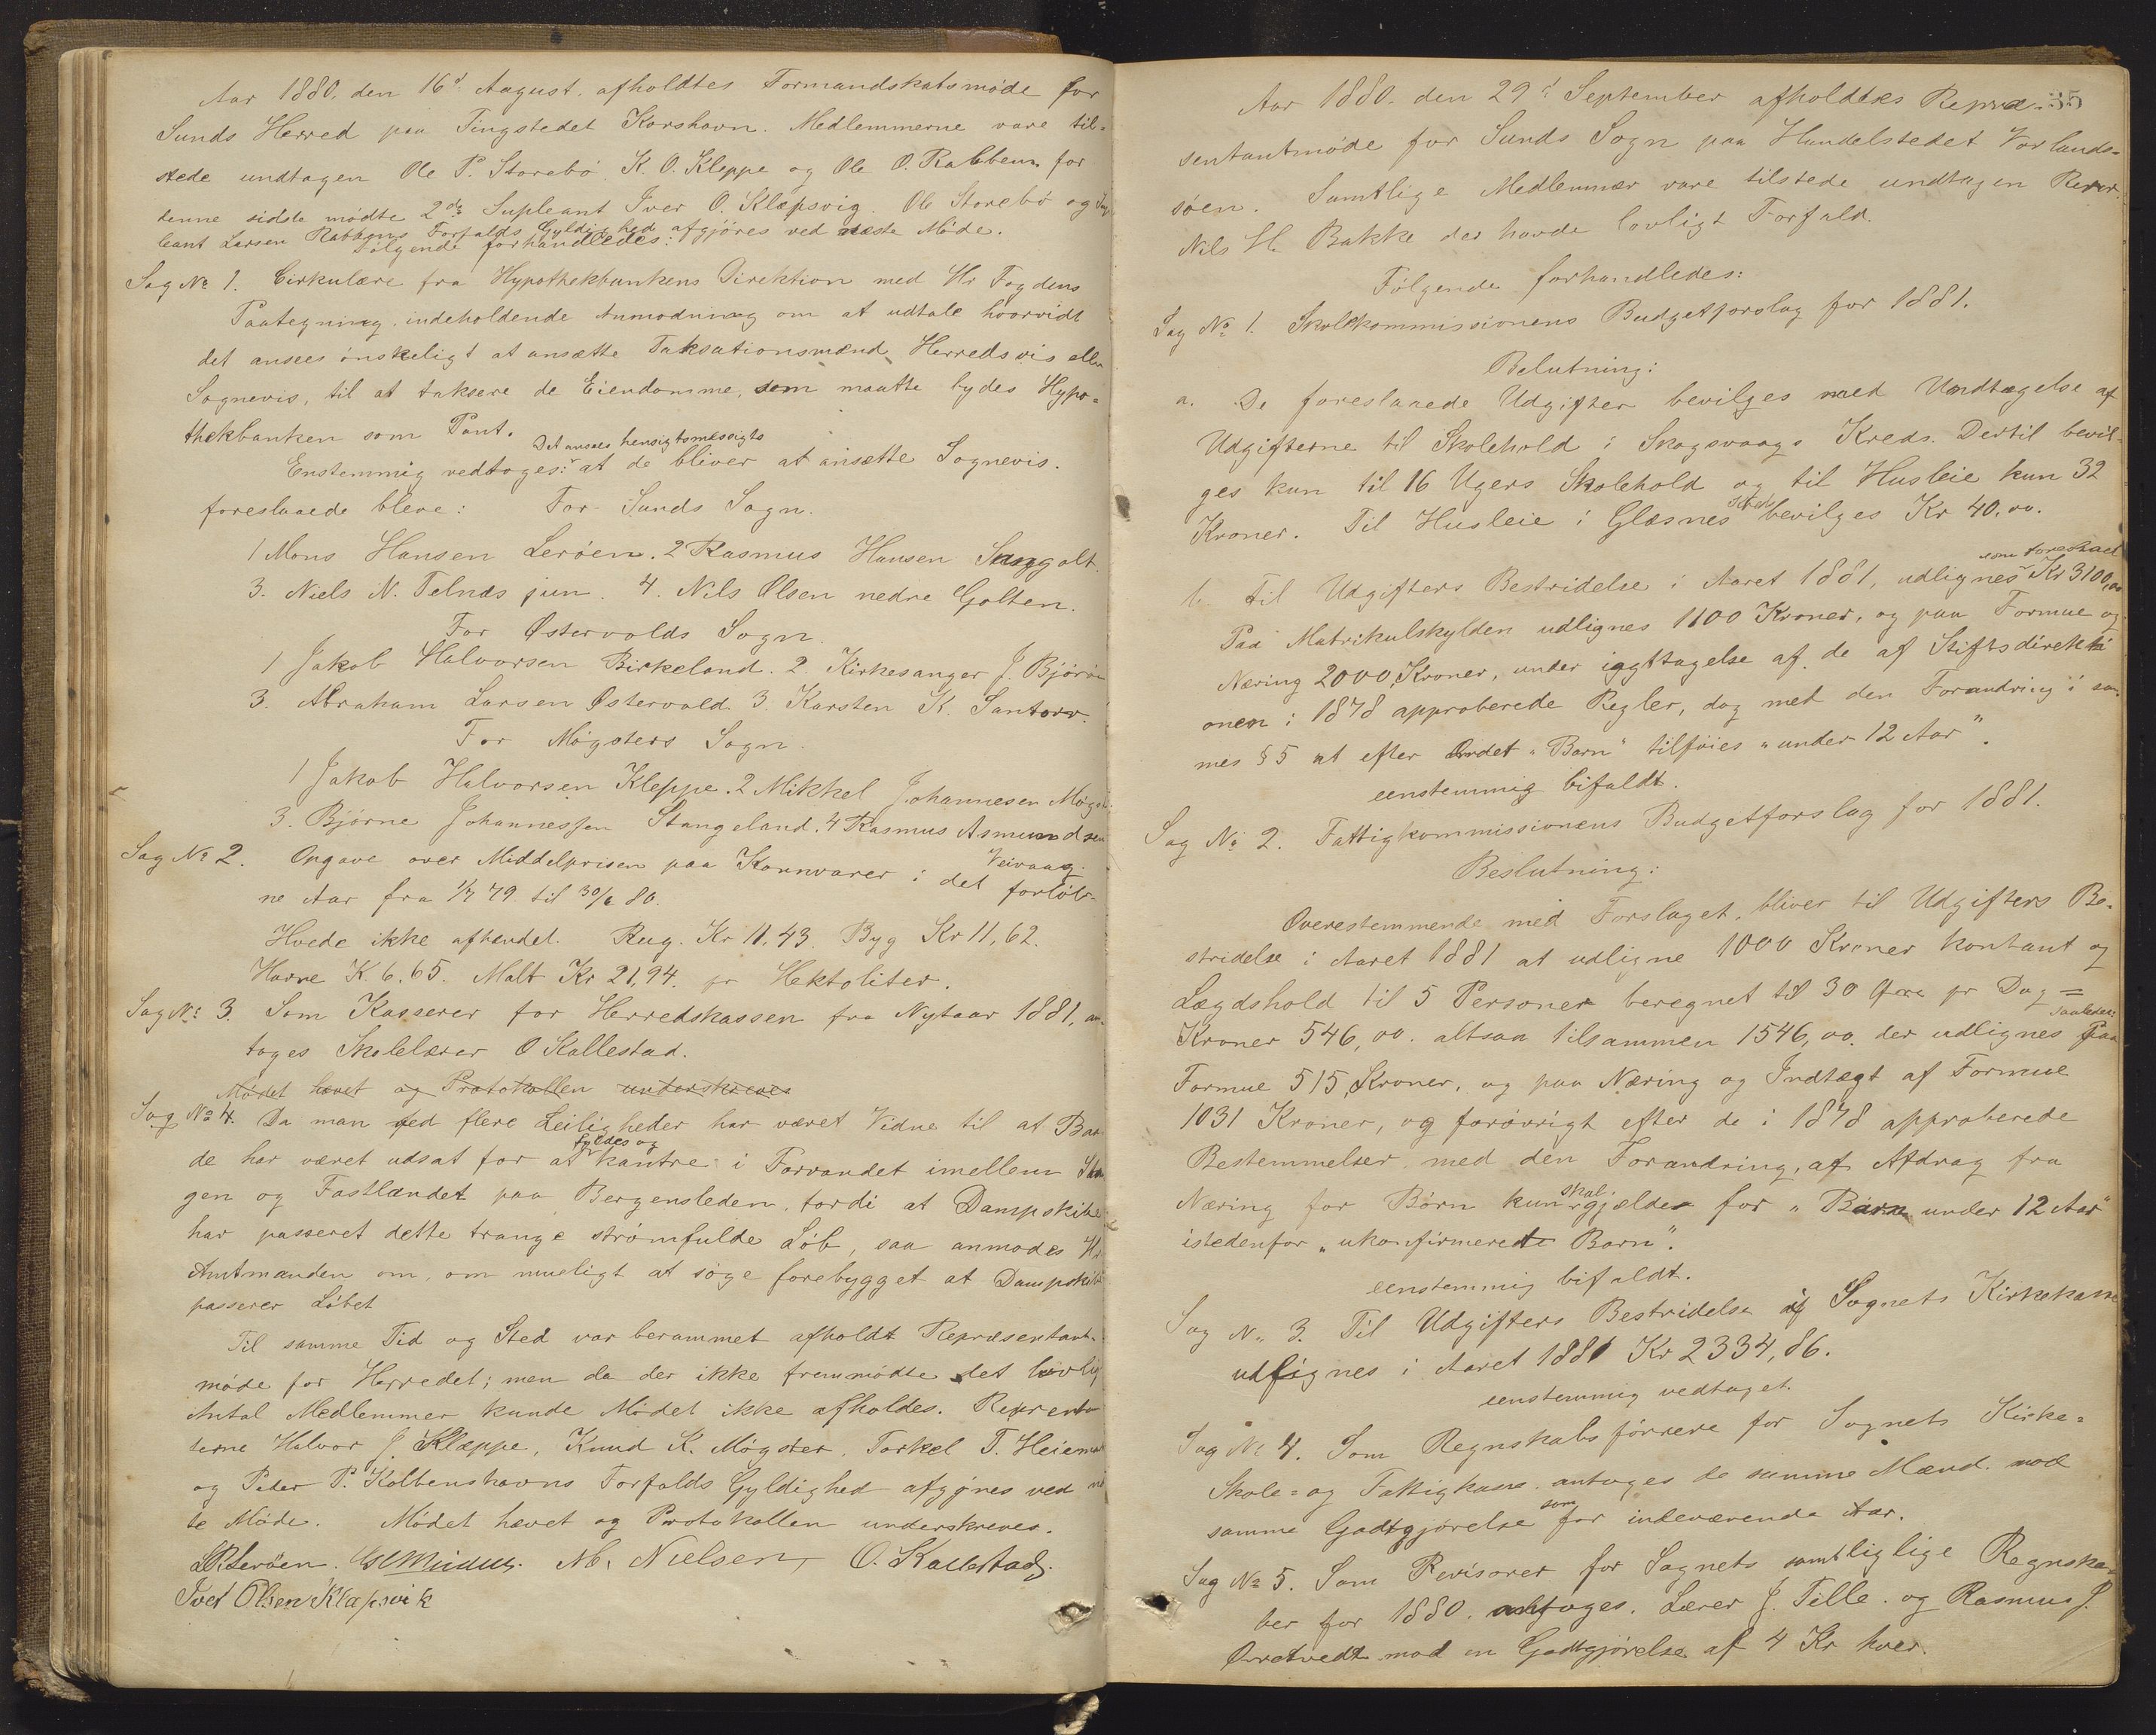 Aar 1880. den 16d August. afholdtes Formandskabsmøde for
Sunds Herred paa Tingstedet Korshavn. Medlemmerne vare til-
stede undtagen Ole P. Storebø K. O. Kleppe og Ole O. Rabben for
denne sidste mødte 2de Supleant Iver O. Klepsvig. Ole Storebø og Sup
leant Larsen Rabbens Forfalds Gyldighed afgjøres ved næste Møde.
Følgende forhandledes:
Sag No 1. Cirkulære fra Hypothekbankens Direktion med Hr Fogdens
Paategning. indeholdende Anmodning om at udtale hvorvidt
det ansees ønskeligt at ansætte Taksationsmænd Herredsvis eller
Sognevis, til at taksere de Eiendomme, som maatte bydes Hypo-
thekbanken som Pant.
Enstemmig vedtoges: Det ansees hensigtsmæssigts at de bliver at ansætte Sognevis.
foreslaaede bleve: For Sunds Sogn.
1 Mons Hansen Lerøen. 2 Rasmus Hansen Sangolt.
3. Niels N. Telnæs jun. 4. Nils Olsen nedre Golten.
For Østervolds Sogn.
1 Jakob Halvorsen Birkeland. 2. Kirkesanger J. Bjørøen
3. Abraham Larsen Østervold. 3. Karsten K. Santorv.
For Møgsters Sogn.
1 Jakob Halvorsen Kleppe. 2 Mikkel Johannesen Møgst.
3. Bjørne Johannessen Stangeland. 4 Rasmus Asmundsen
Veivaag.
Sag No 2. Opgave over Middelprisen paa Kornvarer i det forløb-
ne Aar fra 1/7 79. til 30/6 80.
Hvede ikke afhendet. Rug. Kr 11,43. Byg Kr 11,62.
Havre K 6,65. Malt Kr 21,94. pr Hektoliter.
Sag No 3. Som Kasserer for Herredskassen fra Nytaar 1881, an-
toges Skolelærer O Kallestad.
Mødet hævet og Protokollen underskreves
Sag No 4. Da man ved flere Leiligheder har været Vidne til at Baa-
de har været udsat for at fyldes og kantre i Farvandet imellem Stan
gen og Fastlandet paa Bergensleden, fordi at Dampskibe
har passeret dette trange strømfulde Løb, saa anmodes Hr
Amtmanden om, om mueligt at søge forebygget at Dampskibe
passerer Løbet
Til samme Tid og Sted var berammet afholdt Repræsentant-
møde for Herredet; men da der ikke fremmødte det lovlig
Antal Medlemmer kunde Mødet ikke afholdes. Represen-
terne Halvor J Klæppe, Knud K. Møgster, Torkel T. Heiemark
og Peder P. Kolbenshavns Forfalds Gyldighed afgjøres ved næ
te Møde. Mødet hævet og Protokollen underskreves.
Lerøen. M. Nielsen, O. Kallestad.
Iver Olsen Klapsvik
35
Aar 1880. den 29d September afholdtes Repræ-
sentantmøde for Sunds Sogn paa Handelstedet Vorlands-
søen. Samtlige Medlemmer vare tilstede undtagen Repr.
Nils H. Bakke der havde lovligt Forfald.
Følgende forhandledes:
Sag No 1. Skolekommissionens Budgetforslag for 1881.
Belutning:
a. De foreslaaede Udgifter bevilges med Undtagelse af
Udgifterne til Skolehold i Skogsvaags Kreds. Dertil bevil-
ges kun til 16 Ugers Skolehold og til Husleie kun 32
Kroner. Til Husleie i Glæsnes bevilges Kr 40.00.
b. Til Udgifters Bestridelse i Aaret 1881, udlignes som foreslaaet Kr 3100,00
Paa Matrikulskylden udlignes 1100 Kroner, og paa Formue og
Næring 2000 Kroner, under iagttagelse af de af Stiftsdirekti
onen i 1878 approberede Regler, dog med den Forandring i sam-
mes § 5 at efter Ordet "Børn" tilføies "under 12 Aar".
eenstemmig bifaldt.
Sag No 2. Fattigkommissionens Budgetforslag for 1881.
Beslutning:
Overestemmende med Forslaget, bliver til Udgifters Be-
stridelse i Aaret 1881 at udligne 1000 Kroner kontant og
Lægdshold til 5 Personer beregnet til 30 Øre pr Dag =
Kroner 546,00. altsaa tilsammen 1546,00. der udlignes saaledes: Paa
Formue 515 Kroner, og paa Næring og Indtægt af Formue
1031 Kroner, og forøvrigt efter de i 1878 approberede
Bestemmelser, med den Forandring, af Afdrag fra
Næring for Børn kun skal gjælder for "Børn under 12 Aar"
istedenfor "ukonfirmerede Børn".
eenstemmig bifaldt.
Sag No 3. Til Udgifters Bestridelse af Sognets Kirkekasse
udlignes i Aaret 1881 Kr 2334,86.
eenstemmig vedtaget.
Sag No 4. Som Regnskabsførrere for Sognets Kirke-
Skole- og Fattigkasse. antoges de samme Mænd. mod
samme Godtgjørelse som for indeværende Aar.
Sag No 5. Som Revisorer for Sognets samtliglige Regnska-
ber for 1880. antoges. Lærer J. Tille. og Rasmus J.
Øvretvedt mod en Godtgjørelse af 4 Kr hver.